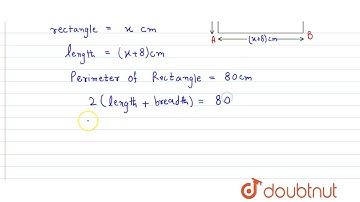 rectangle = x cm
A (x+8)cm B
length = (x+8)cm
Perimeter of Rectangle = 80cm
2(length + breadth) = 80
doubtnut